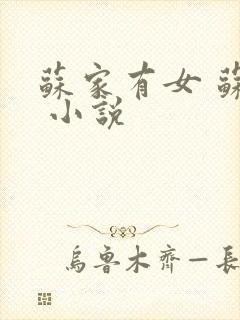 蘇家有女 蘇
小說
烏魯木齊—長